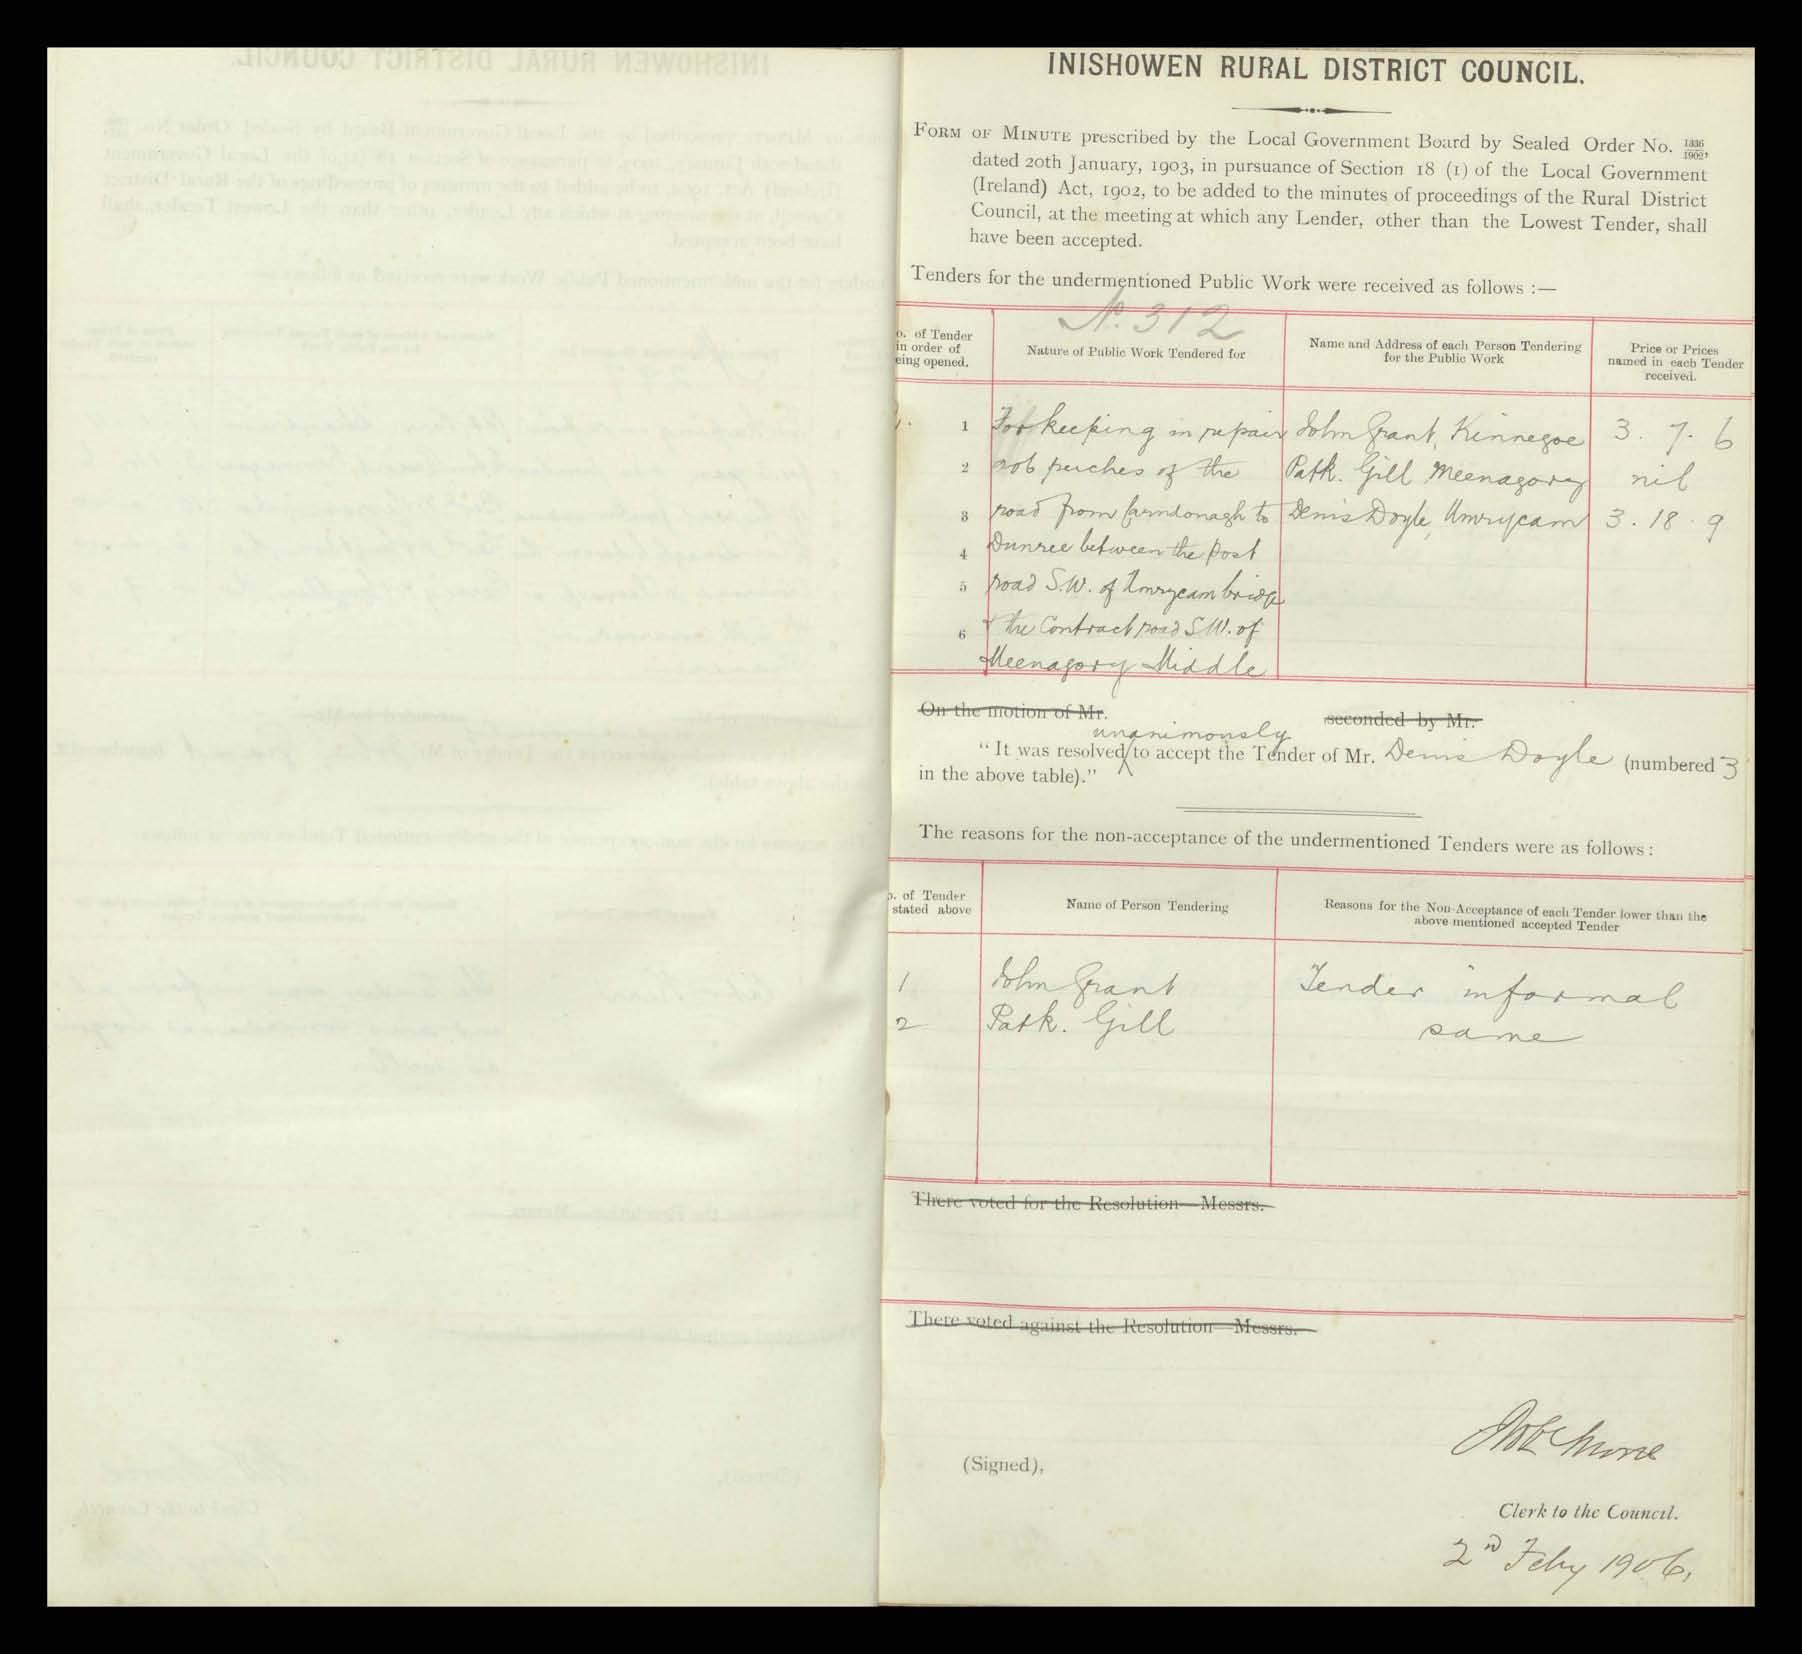 INISHOWEN RURAL DISTRICT COUNCIL.
FORM OF MINUTE prescribed by the Local Government Board by Sealed Order No. 1336/1902,
dated 20th January, 1903, in pursuance of Section 18 (1) of the Local Government
(Ireland) Act, 1902, to be added to the minutes of proceedings of the Rural District
Council, at the meeting at which any Lender, other than the Lowest Tender, shall
have been accepted.
Tenders for the undermentioned Public Work were received as follows :—
No. 312
o. of Tender in order of eing opened.
Nature of Public Work Tendered for
Name and Address of each Person Tendering for the Public Work
Price or Prices named in each Tender received.
1 For keeping in repair John Grant, Kinnegoe 3. 7. 6
2 206 perches of the Patk. Gill Meenagory nil
3 road from Carndonagh to Denis Doyle, Umrycam 3. 18. 9
4 Dunree between the post
5 road S.W. of Umrycam bridge
6 & the Contract road S.W. of
Meenagory Middle
On the motion of Mr. seconded by Mr.
unanimously
"It was resolved to accept the Tender of Mr. Denis Doyle (numbered 3
in the above table)."
The reasons for the non-acceptance of the undermentioned Tenders were as follows:
o. of Tender stated above
Name of Person Tendering
Reasons for the Non-Acceptance of each Tender lower than the above-mentioned accepted Tender
1 John Grant Tender informal
2 Patk. Gill same
There voted for the Resolution—Messrs.
There voted against the Resolution—Messrs.
(Signed),
Clerk to the Council.
2nd Feby 1906.